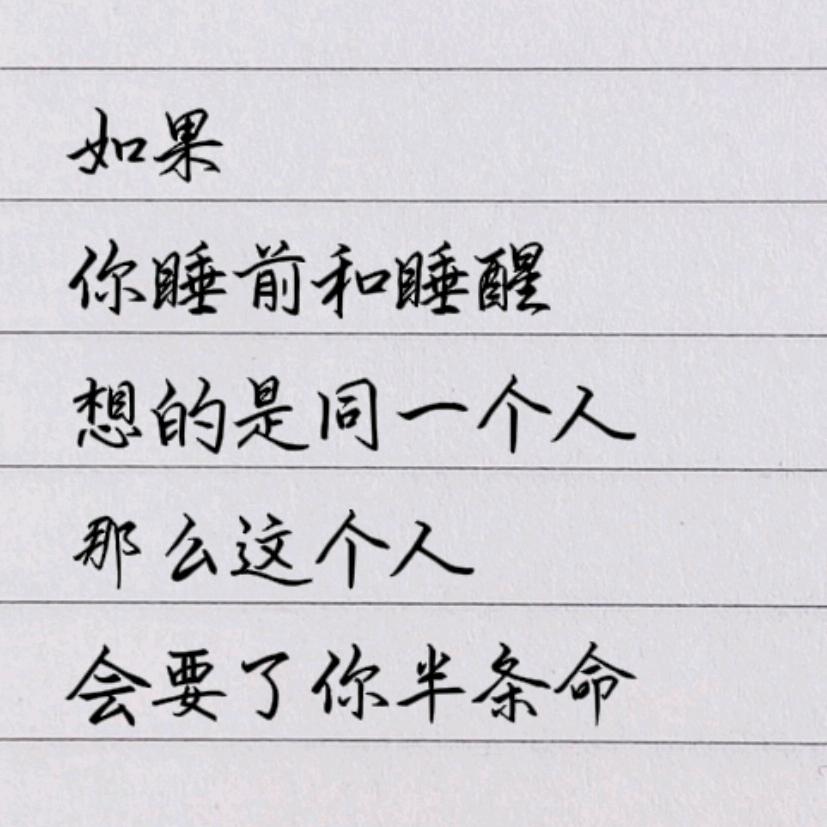 如果
你睡前和睡醒
想的是同一个人
那么这个人
会要了你半条命